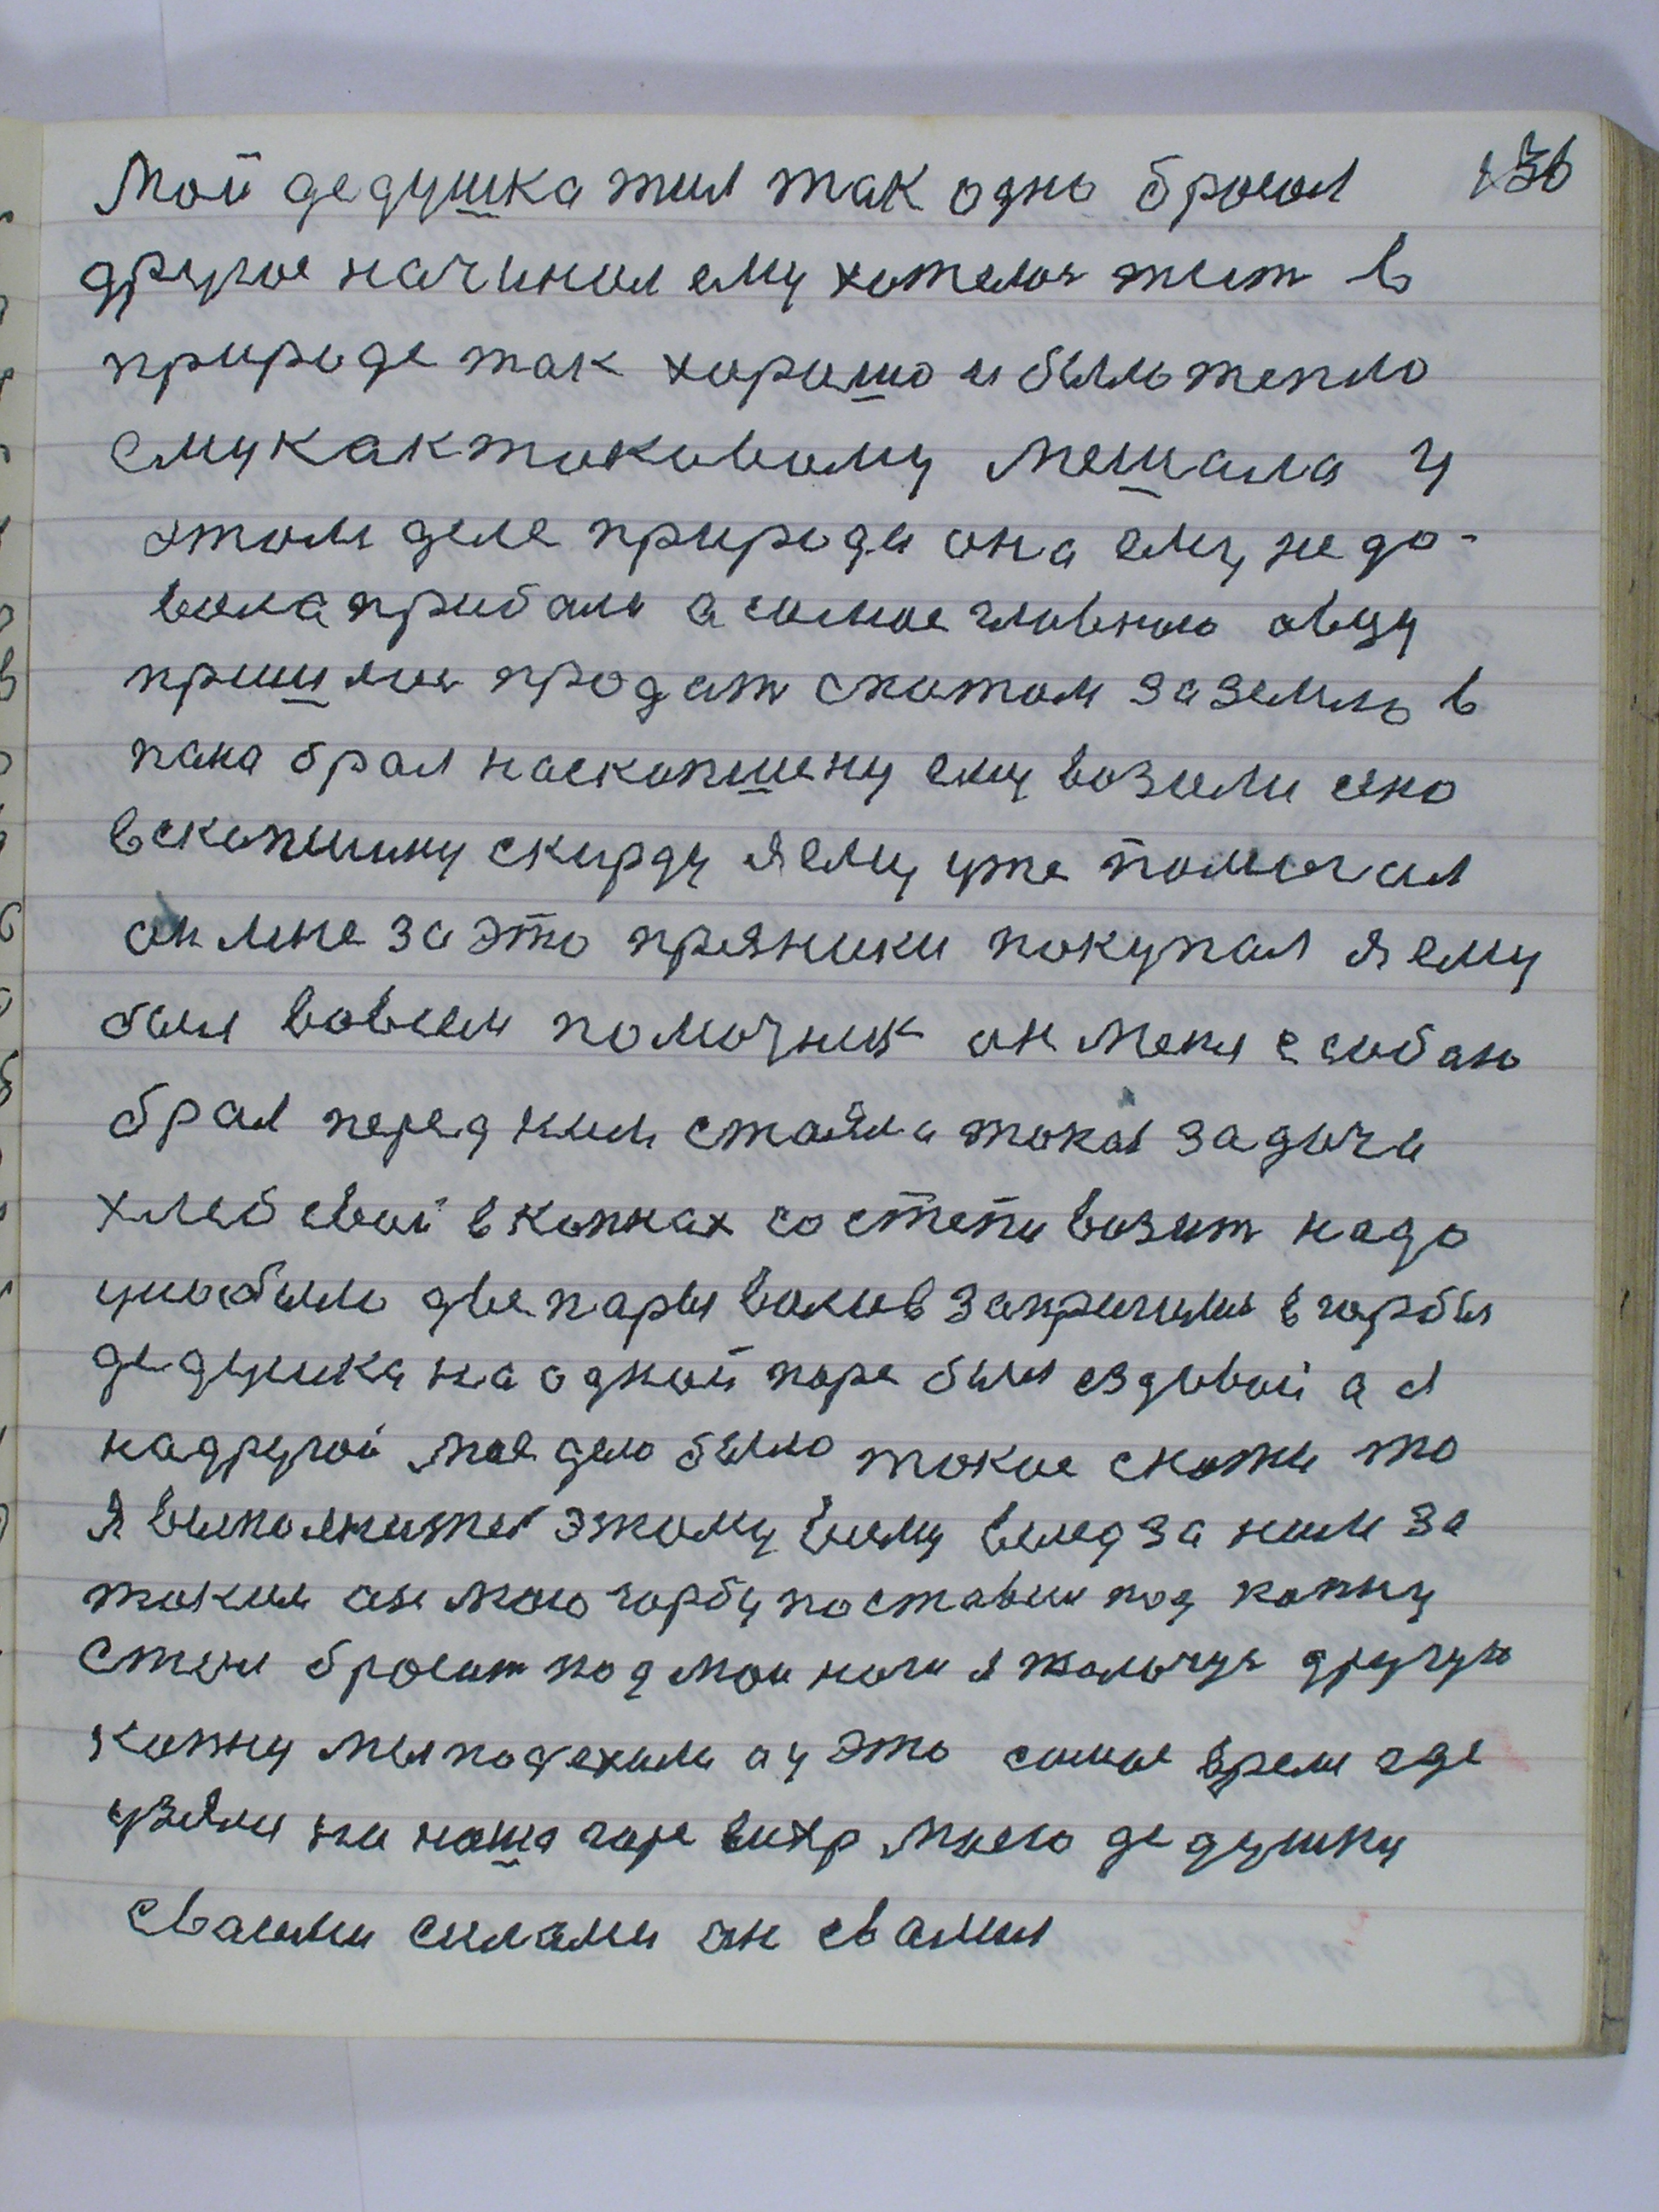 Мой дедушка жил так одно бросал 136
другое начинал ему хотелос жит в
природе так хорошо и было тепло
ему как таковому мешала у
этом деле природа она ему не до-
вола прибали а самое главною овцу
пришлос продат скотом за землю в
пана брал наскопшену ему возили сено
вскопшину скирду я ему уже помогал
он мне за это пряники покупал я ему
был вовсем помочник он меня с собаю
брал перед ним стояла такая задача
хлеб свой в копнах со степи возит надо
у нас было две пары волов запрягили в гарбы
дедушка на одной паре был ездовой а я
на другой мое дело было такое скажи то
я выполнитель этому всему вслед за ним за
таким он мою гарбу поставил под копну
стои бросит под мои ноги я топчу другую
копну мы подехали а у это самое время где
узялся на наше горе вихр моего дедушку
сваими силами он свалил